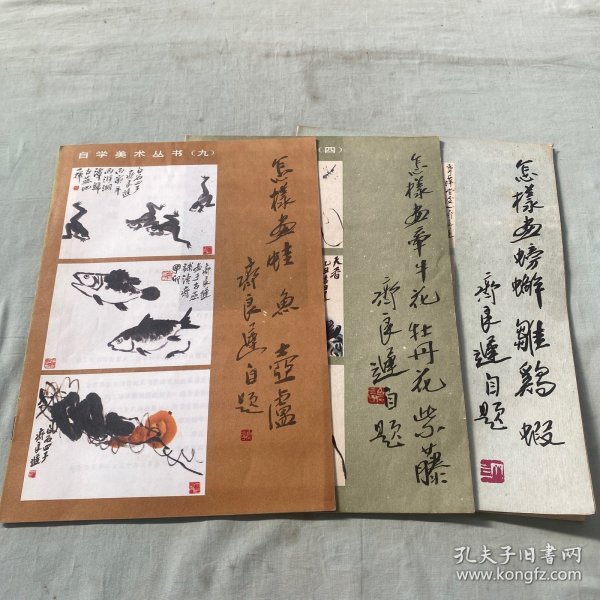 自学美术丛书（九）
怎樣画蛙魚壶盧
齊良遲自题
（四）
怎樣画牽牛花牡丹花紫藤
齊良遲自题
怎樣画螃蟹雛鷄蝦
齊良遲自题
孔夫子旧书网
www.kongfz.com